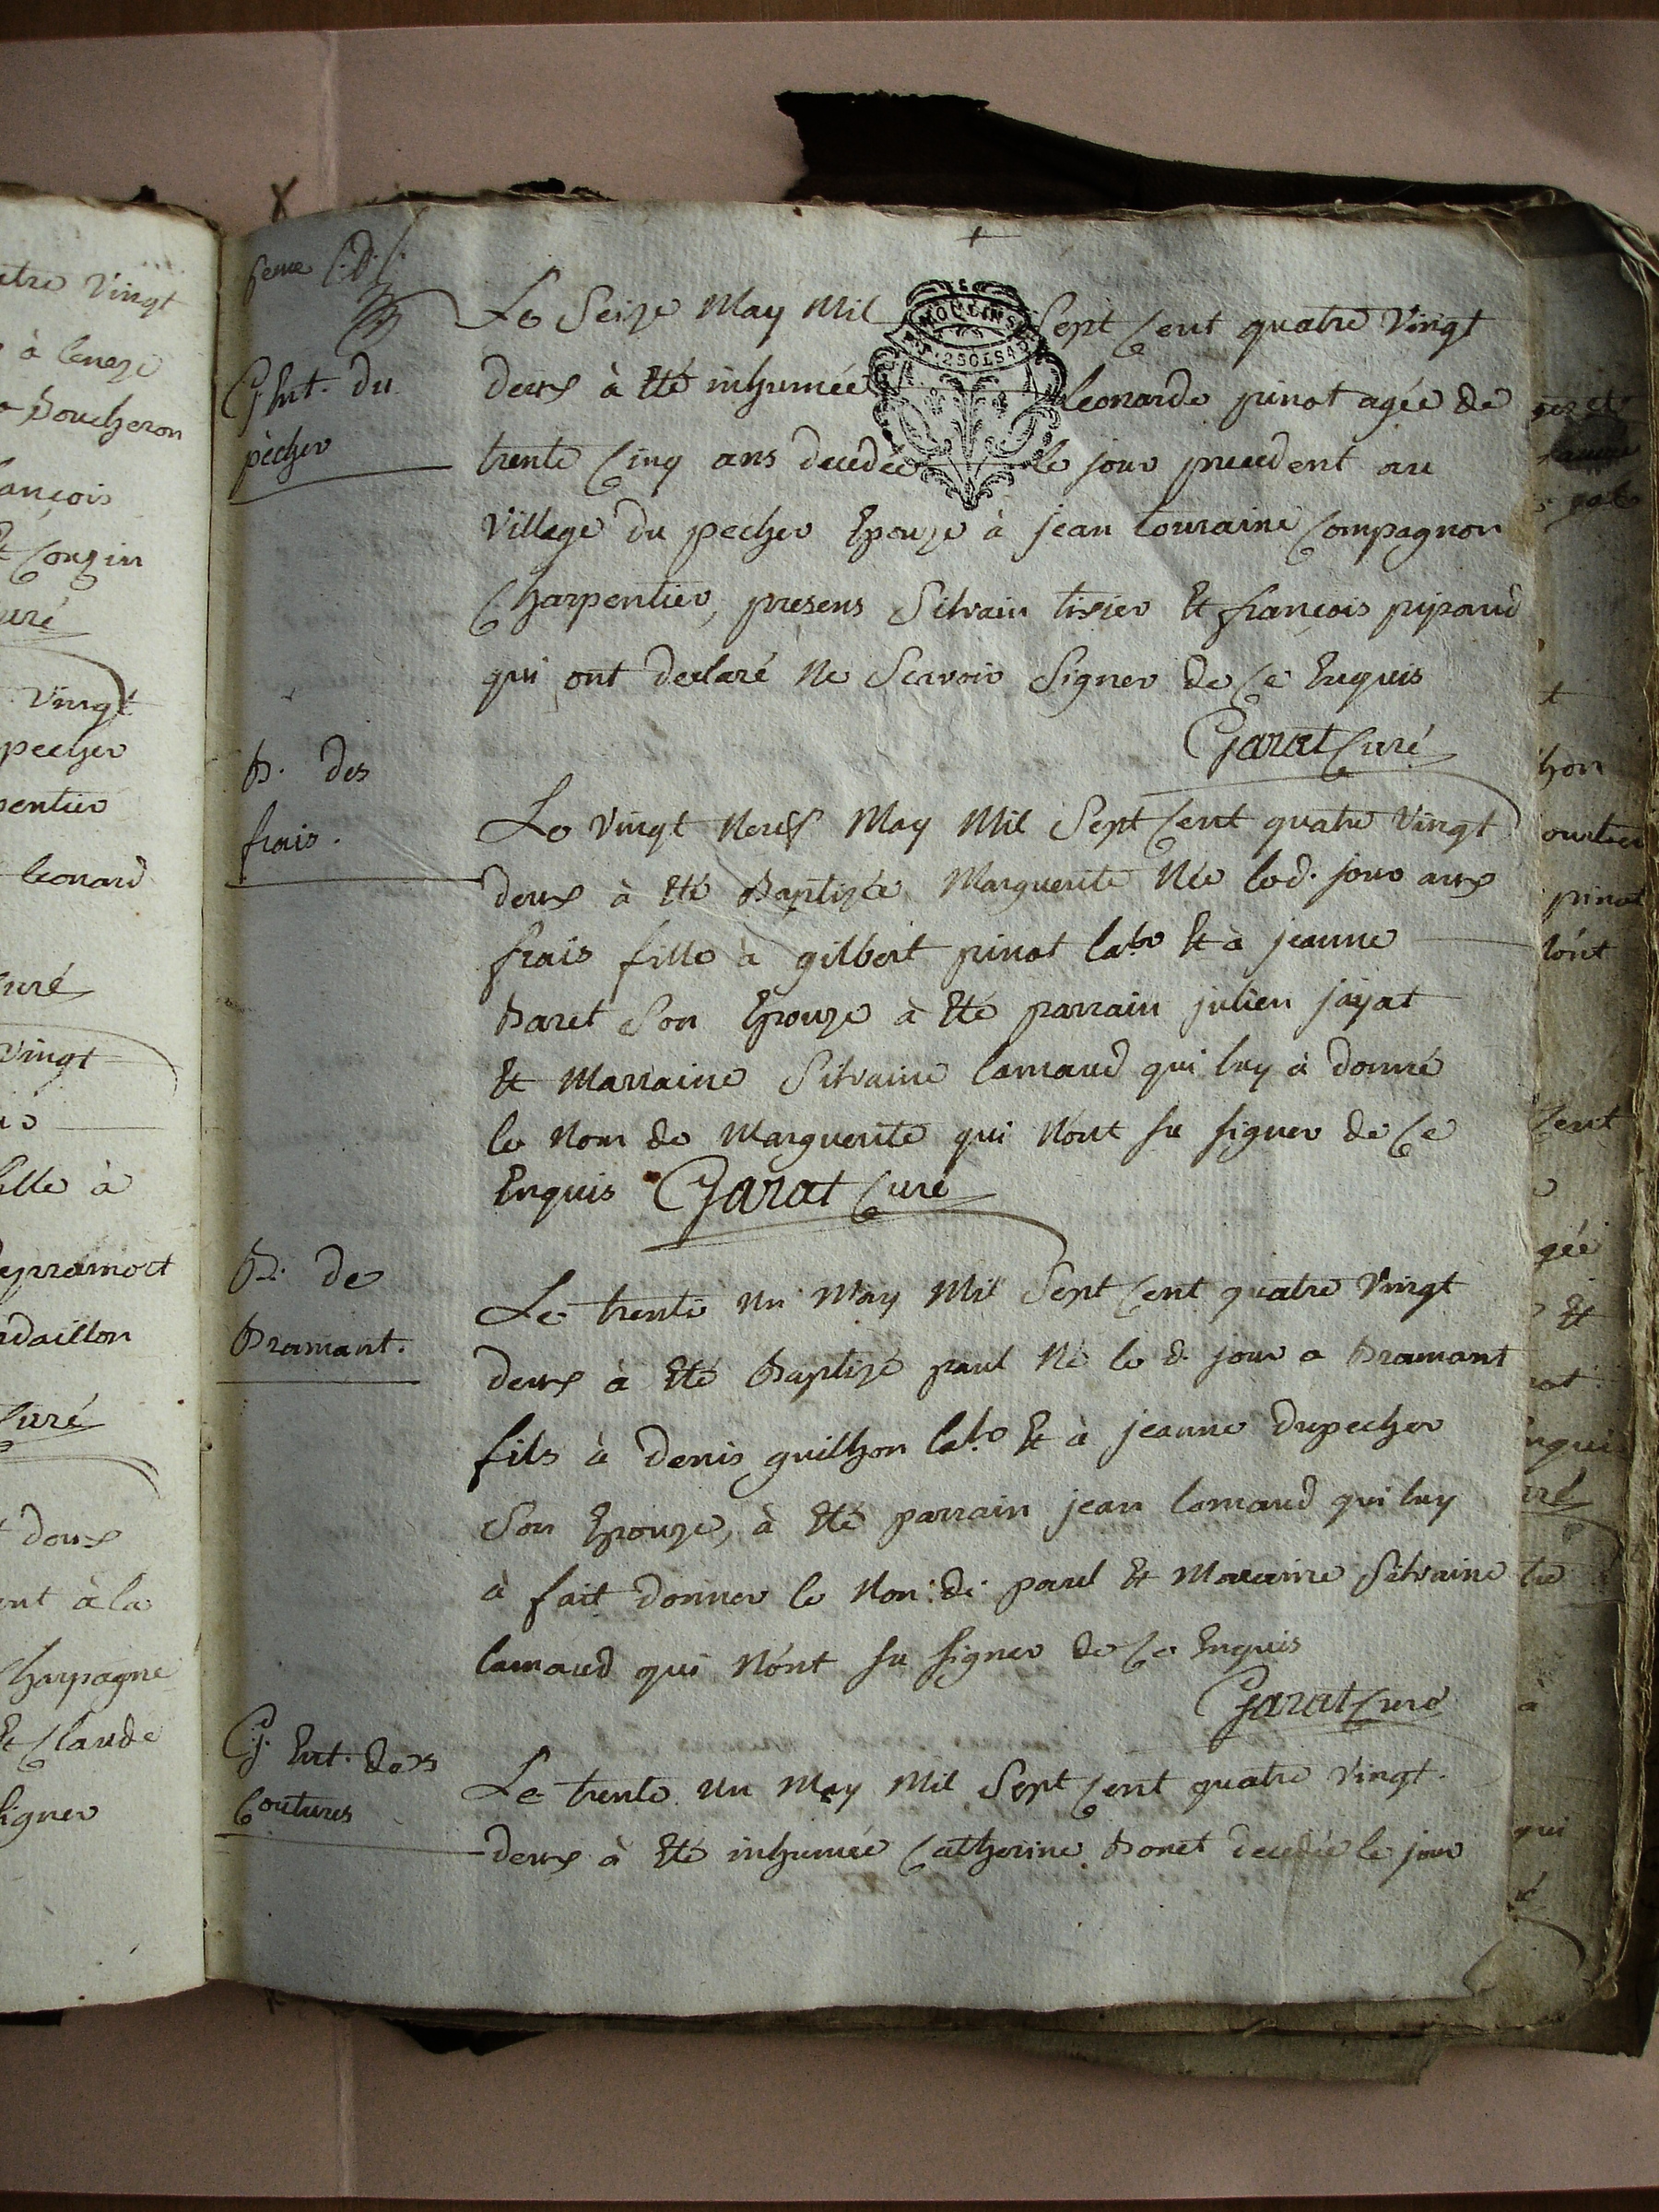 atre Vingt
à lenezé
Boucheron
ançois
Et Cousin
uré
Vingt
pecher
pentier
leonard
Curé
Vingt
fille à
ardaillon
Curé
deux
ent à la
Champagne
Et Claude
signer
6eme
Le Seize May Mil Sept Cent quatre Vingt
MOULINS
G. Ent. du
deux à Eté inhumée leonarde pinot agée de
pècher
trente Cinq ans decedée le jour precedent au
Village du pecher Epouze à jean touraine Compagnon
Charpentier, presens Silvain tixier Et françois pipaud
qui ont declaré Ne Scavoir Signer de Ce Enquis
Garat Curé
B. des
frais.
Le Vingt Neuf May Mil Sept Cent quatre Vingt
deux à Eté Baptizée Marguerite Née led. jour aux
frais fille à gilbert pinot labr Et à jeanne
Baret Son Epouze à Eté parrain julien jayat
Et Marraine Silvaine lamaud qui luy à donné
le Nom de Marguerite qui N'ont su signer de Ce
Enquis Garat Curé
B. de
Bramant.
Le trente Un May Mil Sept Cent quatre Vingt
deux à Eté Baptizé paul Né le d. jour a Bramant
fils à denis guilhon labr Et à jeanne dupecher
Son Epouze, à Eté parrain jean lamaud qui luy
à fait donner le Nom de paul Et Maraine Silvaine
lamaud qui N'ont su signer de Ce Enquis
Garat Curé
G. Ent. des
Coutures
Le trente Un May Mil Sept Cent quatre Vingt
deux à Eté inhumée Catherine Bonet decedée le jour
hon
pinot
lont
Cent
gée
Et
Enquis
à
qui